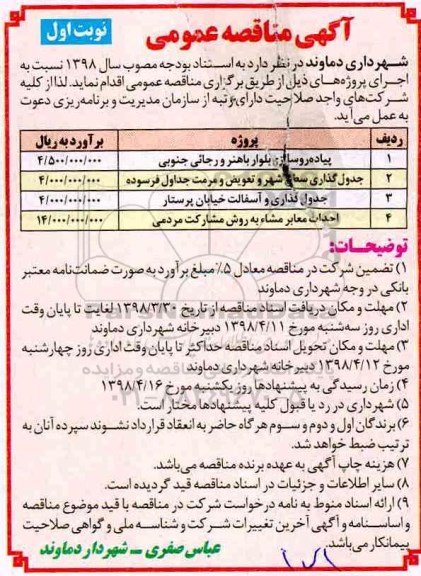 آگهی مناقصه عمومی
نوبت اول
شهرداری دماوند در نظر دارد به استناد بودجه مصوب سال ۱۳۹۸ نسبت به
اجرای پروژه‌های ذیل از طریق برگزاری مناقصه عمومی اقدام نماید. لذا از کلیه
شرکت‌های واجد صلاحیت دارای رتبه از سازمان مدیریت و برنامه‌ریزی دعوت
به عمل می‌آید.
ردیف پروژه برآورد به ریال
۱ پیاده‌روسازی بلوار باهنر و رجائی جنوبی ۴/۵۰۰/۰۰۰/۰۰۰
۲ جدول‌گذاری سطح شهر و تعویض و مرمت جداول فرسوده ۴/۰۰۰/۰۰۰/۰۰۰
۳ جدول گذاری و آسفالت خیابان پرستار ۴/۰۰۰/۰۰۰/۰۰۰
۴ احداث معابر مشاء به روش مشارکت مردمی ۱۴/۰۰۰/۰۰۰/۰۰۰
توضیحات:
۱) تضمین شرکت در مناقصه معادل ۵٪ مبلغ برآورد به صورت ضمانت‌نامه معتبر
بانکی در وجه شهرداری دماوند
۲) مهلت و مکان دریافت اسناد مناقصه از تاریخ ۱۳۹۸/۳/۳۰ لغایت تا پایان وقت
اداری روز سه‌شنبه مورخ ۱۳۹۸/۴/۱۱ دبیرخانه شهرداری دماوند
۳) مهلت و مکان تحویل اسناد مناقصه حداکثر تا پایان وقت اداری روز چهارشنبه
مورخ ۱۳۹۸/۴/۱۲ دبیرخانه شهرداری دماوند
۴) زمان رسیدگی به پیشنهادها روز یکشنبه مورخ ۱۳۹۸/۴/۱۶
۵) شهرداری در رد یا قبول کلیه پیشنهادها مختار است.
۶) برندگان اول و دوم و سوم هر گاه حاضر به انعقاد قرارداد نشوند سپرده آنان به
ترتیب ضبط خواهد شد.
۷) هزینه چاپ آگهی به عهده برنده مناقصه می‌باشد.
۸) سایر اطلاعات و جزئیات در اسناد مناقصه قید گردیده است.
۹) ارائه اسناد منوط به نامه درخواست شرکت در مناقصه با قید موضوع مناقصه
و اساسنامه و آگهی آخرین تغییرات شرکت و شناسه ملی و گواهی صلاحیت
پیمانکار می‌باشد.
عباس صفری – شهردار دماوند